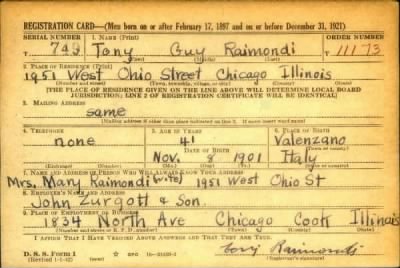 REGISTRATION CARD—(Men born on or after February 17, 1897 and on or before December 31, 1921)
SERIAL NUMBER 1. NAME (Print) ORDER NUMBER
749 Tony Guy Raimondi 11173
(First) (Middle) (Last)
2. PLACE OF RESIDENCE (Print)
1951 West Ohio Street Chicago Illinois
(Number and street) (Town, township, village, or city) (County) (State)
[THE PLACE OF RESIDENCE GIVEN ON THE LINE ABOVE WILL DETERMINE LOCAL BOARD
JURISDICTION; LINE 2 OF REGISTRATION CERTIFICATE WILL BE IDENTICAL]
3. MAILING ADDRESS
same
[Mailing address if other than place indicated on line 2. If same insert word same]
4. TELEPHONE 5. AGE IN YEARS 6. PLACE OF BIRTH
none 41 Valenzano
DATE OF BIRTH (Town or county)
Nov. 8 1901 Italy
(Exchange) (Number) (Mo.) (Day) (Yr.) (State or country)
7. NAME AND ADDRESS OF PERSON WHO WILL ALWAYS KNOW YOUR ADDRESS
Mrs. Mary Raimondi (wife) 1951 West Ohio St
8. EMPLOYER'S NAME AND ADDRESS
John Zurgott & Son.
9. PLACE OF EMPLOYMENT OR BUSINESS
1834 North Ave Chicago Cook Illinois
(Number and street or R. F. D. number) (Town) (County) (State)
I AFFIRM THAT I HAVE VERIFIED ABOVE ANSWERS AND THAT THEY ARE TRUE.
D. S. S. Form 1
(Revised 1-1-42) (over) Tony Raimondi